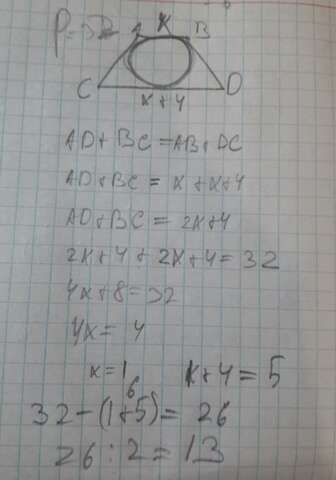 P=32 A x B
C D
x+4
AD+BC=AB+DC
AD+BC= x+x+4
AD+BC= 2x+4
2x+4+2x+4=32
4x+8=32
4x= 4
x=1 x+4=5
6
32-(1+5)= 26
26:2=13